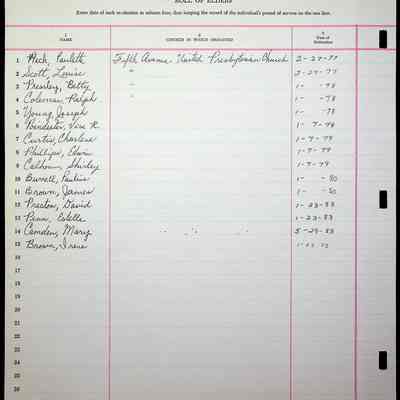 ROLL OF ELDERS
Enter date of each re-election in column four, thus keeping the record of the individual's period of service on the one line.
1 NAME 2 CHURCH IN WHICH ORDAINED 3 Year of Ordination
1 Heck, Paulette Fifth Avenue United Presbyterian Church 2-27-77
2 Scott, Louise " 2-27-77
3 Pressley, Betty " 1- -78
4 Coleman, Ralph " 1- -78
5 Young, Joseph 1- -78
6 Poindexter, R. 1-7-79
7 Curtis, Charlene 1-7-79
8 Phillips, Edwin 1-7-79
9 Calhoun, Shirley 1-7-79
10 Burrell, 1- -80
11 Brown, James 1- -80
12 Preston, David 1-23-83
13 Penn, Estelle 1-23-83
14 Camden, Mary 5-29-83
15 Brown, Irene
16
17
18
19
20
21
22
23
24
25
26